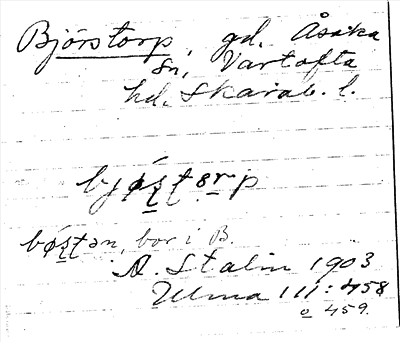 Björstorp, gd. Åsaka
sn, Vartofta
hd. Skarab. l.
bjǿs̱ṯərp
bǿs̱ṯən, bor i B.
A. Stalin 1903
Ulma 111:458
o 459.